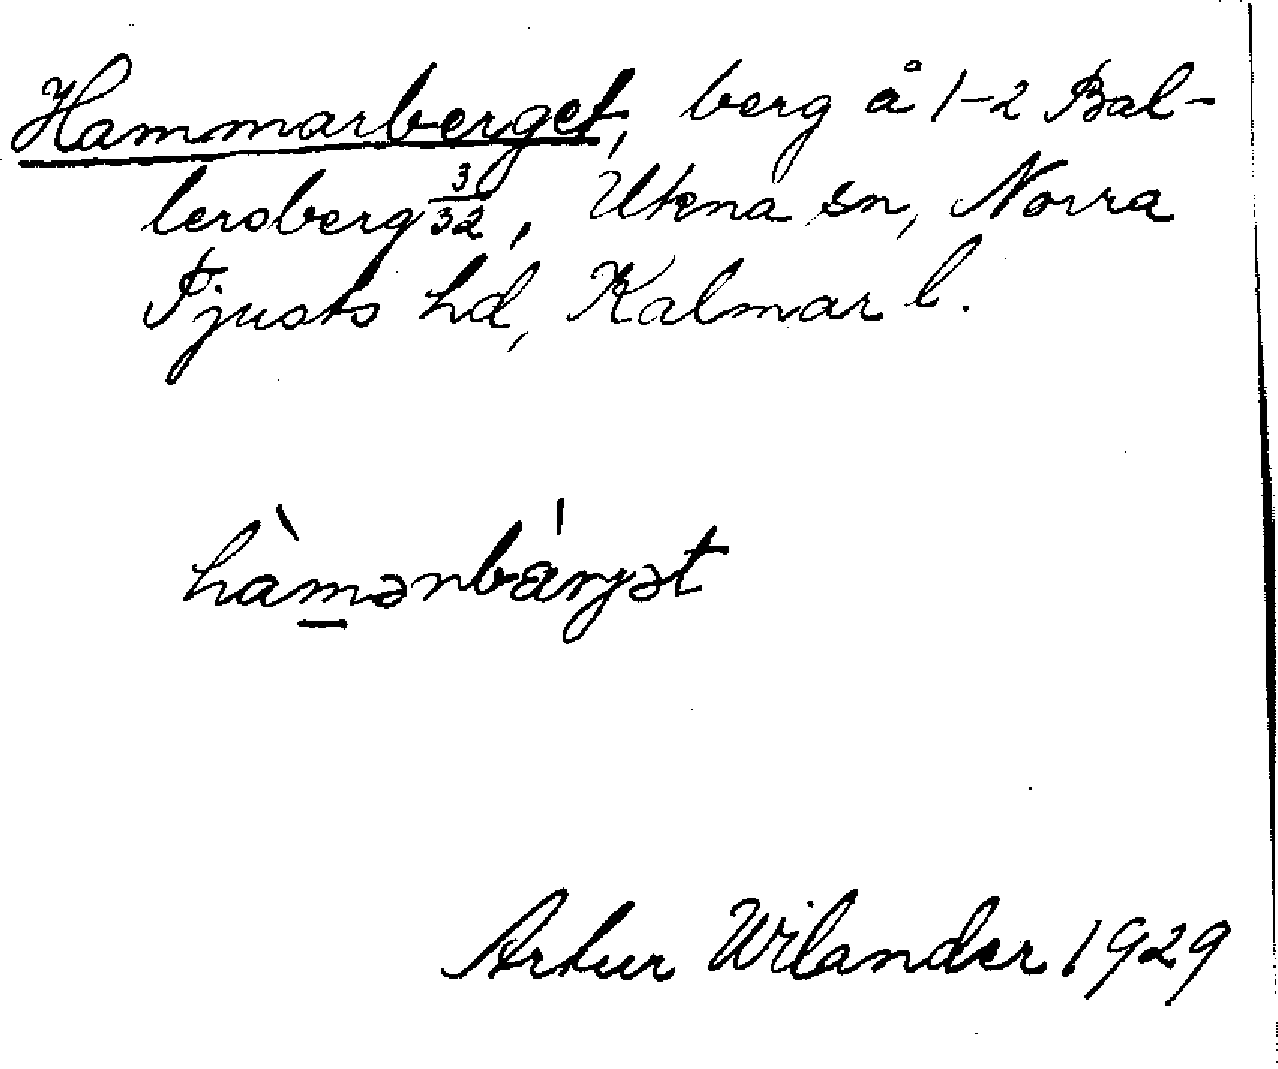 Hammarberget, berg å 1-2 Bal-
lersberg 3/32, Ukna sn, Norra
Tjusts hd, Kalmar l.
hàmərbárjət
Artur Wilander 1929